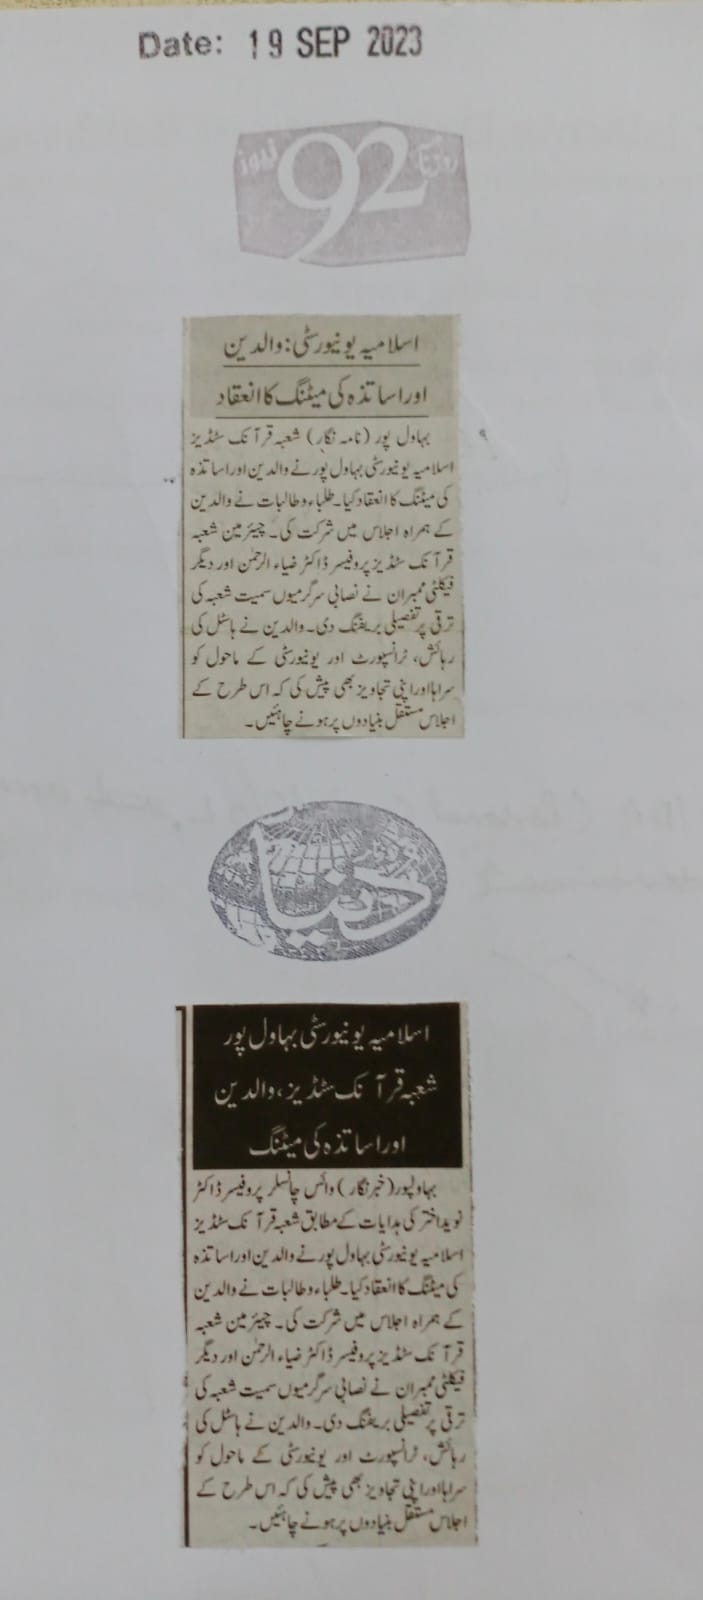 Date: 19 SEP 2023
روزنامہ 92 نیوز
اسلامیہ یونیورسٹی: والدین
اور اساتذہ کی میٹنگ کا انعقاد
بہاول پور (نامہ نگار) شعبہ قرآنک سٹڈیز
اسلامیہ یونیورسٹی بہاول پور نے والدین اور اساتذہ
کی میٹنگ کا انعقاد کیا۔ طلباء و طالبات نے والدین
کے ہمراہ اجلاس میں شرکت کی۔ چیئرمین شعبہ
قرآنک سٹڈیز پروفیسر ڈاکٹر ضیاء الرحمٰن اور دیگر
فیکلٹی ممبران نے نصابی سرگرمیوں سمیت شعبہ کی
ترقی پر تفصیلی بریفنگ دی۔ والدین نے ہاسٹل کی
رہائش، ٹرانسپورٹ اور یونیورسٹی کے ماحول کو
سراہا اور اپنی تجاویز بھی پیش کی کہ اس طرح کے
اجلاس مستقل بنیادوں پر ہونے چاہئیں۔
دنیا
اسلامیہ یونیورسٹی بہاول پور
شعبہ قرآنک سٹڈیز، والدین
اور اساتذہ کی میٹنگ
بہاولپور (خبر نگار) وائس چانسلر پروفیسر ڈاکٹر
نوید اختر کی ہدایات کے مطابق شعبہ قرآنک سٹڈیز
اسلامیہ یونیورسٹی بہاول پور نے والدین اور اساتذہ
کی میٹنگ کا انعقاد کیا۔ طلباء و طالبات نے والدین
کے ہمراہ اجلاس میں شرکت کی۔ چیئرمین شعبہ
قرآنک سٹڈیز پروفیسر ڈاکٹر ضیاء الرحمٰن اور دیگر
فیکلٹی ممبران نے نصابی سرگرمیوں سمیت شعبہ کی
ترقی پر تفصیلی بریفنگ دی۔ والدین نے ہاسٹل کی
رہائش، ٹرانسپورٹ اور یونیورسٹی کے ماحول کو
سراہا اور اپنی تجاویز بھی پیش کی کہ اس طرح کے
اجلاس مستقل بنیادوں پر ہونے چاہئیں۔